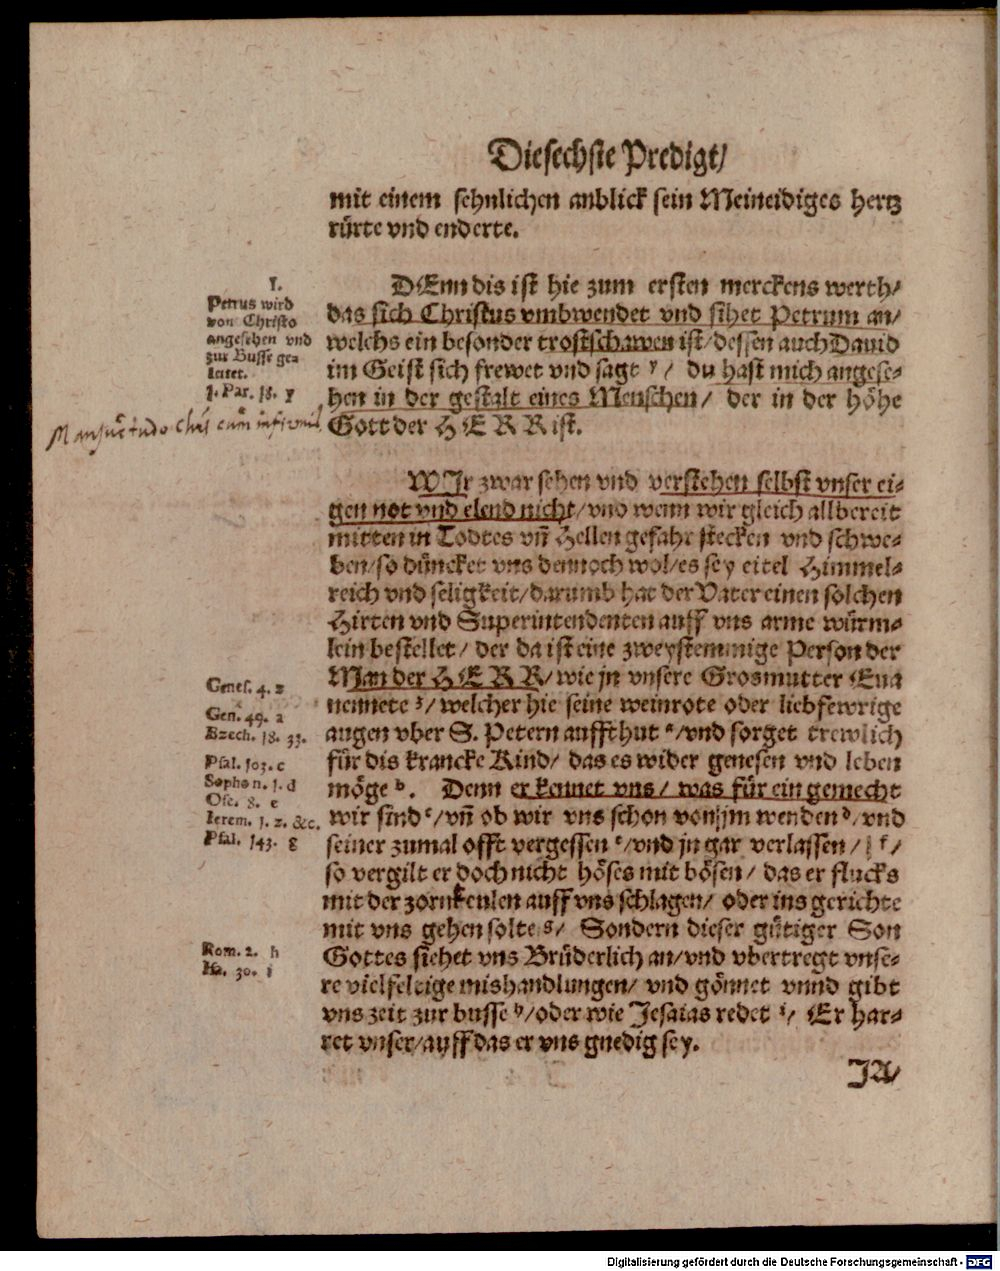 Die sechste Predigt/
mit einem sehnlichen anblick sein Meineidiges hertz
rürte vnd enderte.
I.
Petrus wird
von Christo
angesehen vnd
zur Busse ge⸗
leitet.
1. Par. 18. y
Mansuetudo Chri cum infirmis
DEnn dis ist hie zum ersten merckens werth/
das sich Christus vmbwendet vnd sihet Petrum an/
welchs ein besonder trostschawen ist/ dessen auch Dauid
im Geist sich frewet vnd sagt y/ du hast mich angese⸗
hen in der gestalt eines Menschen/ der in der höhe
Gott der HERR ist.
WIr zwar sehen vnd verstehen selbst vnser ei⸗
gen not vnd elend nicht/ vnd wenn wir gleich allbereit
mitten in Todtes vñ Hellen gefahr stecken vnd schwe⸗
ben/ so düncket vns dennoch wol/ es sey eitel Himmel⸗
reich vnd seligkeit/ darumb hat der Vater einen solchen
Hirten vnd Superintendenten auff vns arme würm⸗
lein bestellet/ der da ist eine zweystemmige Person der
Man der HERR/ wie jn vnsere Grosmutter Eua
nennete z/ welcher hie seine weinrote oder liebfewrige
augen vber S. Petern auffthut a/ vnd sorget trewlich
für dis krancke Kind/ das es wider genesen vnd leben
möge b. Denn er kennet vns/ was für ein gemecht
wir sind c/ vñ ob wir vns schon von jm wenden d/ vnd
seiner zumal offt vergessen e/ vnd jn gar verlassen/ f/
so vergilt er doch nicht böses mit bösen/ das er flucks
mit der zornkeulen auff vns schlagen/ oder ins gerichte
mit vns gehen solte g/ Sondern dieser gütiger Son
Gottes siehet vns Brüderlich an/ vnd vbertregt vnse⸗
re vielfeltige mishandlungen/ vnd gönnet vnnd gibt
vns zeit zur busse h/ oder wie Jesaias redet i/ Er har⸗
ret vnser/ auff das er vns gnedig sey.
Genes. 4. z
Gen. 49. a
Ezech. 18. 33.
Psal. 103. c
Sophon. 1. d
Ose. 8. e
Ierem. 1. 2. &c.
Psal. 143. g
Rom. 2. h
Isa. 30. i
JA/
Digitalisierung gefördert durch die Deutsche Forschungsgemeinschaft - DFG